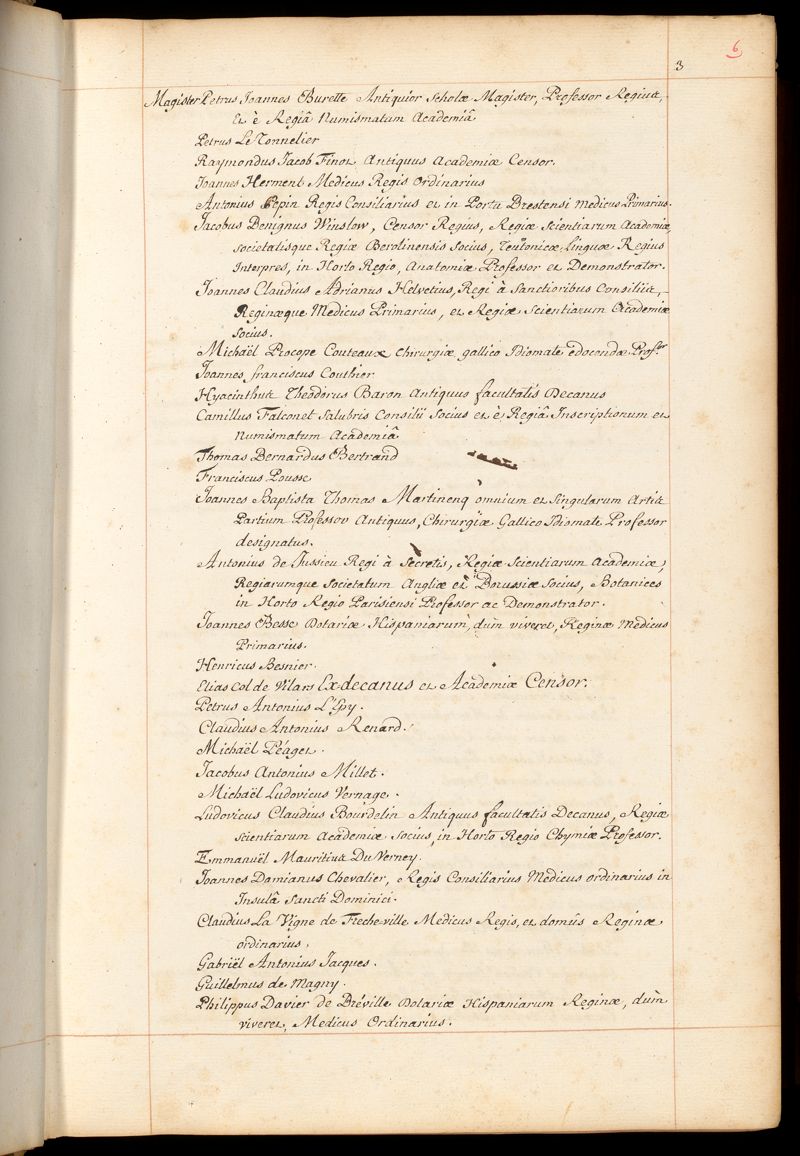 6
3
Magister Petrus Joannes Burette Antiquior Scholæ Magister, Professor Regius,
et è Regiâ Numismatum Academiâ
Petrus Le Tonnelier
Raymondus Jacob Finot Antiquus Academiæ Censor.
Joannes Herment Medicus Regis Ordinarius
Antonius Pepin Regis Consiliarius et in Portu Brestensi Medicus Primarius.
Jacobus Benignus Winslow, Censor Regius, Regiæ Scientiarum Academiæ,
Societatisque Regiæ Berolinensis Socius, Teutonicæ Linguæ Regius
Interpres, in Horto Regio, Anatomiæ Professor et Demonstrator.
Joannes Claudius Adrianus Helvetius, Regi à Sanctioribus Consiliis,
Reginæque Medicus Primarius, et Regiæ Scientiarum Academiæ
Socius.
Michaël Procope Couteaux Chirurgiæ gallico Idiomate edocendæ Profor
Joannes franciscus Couthier
Hyacinthus Theodorus Baron Antiquus facultatis Decanus
Camillus Falconet Salubris Consilii Socius et è Regiâ Inscriptionum et
Numismatum Academiâ
Thomas Bernardus Bertrand
Franciscus Pousse
Joannes Baptista Thomas Martinenq omnium et Singularum Artis
Partium Professor Antiquus, Chirurgiæ Gallico Idiomate Professor
designatus.
Antonius de Jussieu Regi à Secretis, Regiæ Scientiarum Academiæ,
Regiarumque Societatum Angliæ et Borussiæ Socius, Botanices
in Horto Regio Parisiensi Professor ac Demonstrator.
Joannes Besse Dotariæ Hispaniarum, dum viveret, Reginæ Medicus
Primarius.
Henricus Besnier.
Elias Col de Vilars Ex-decanus et Academiæ Censor.
Petrus Antonius L'Epy.
Claudius Antonius Renard.
Michaël Péaget.
Jacobus Antonius Millet.
Michaël Ludovicus Vernage.
Ludovicus Claudius Bourdelin Antiquus facultatis Decanus, Regiæ
Scientiarum Academiæ Socius, in Horto Regio Chymiæ Professor.
Emmanuël Mauritius Du Verney.
Joannes Damianus Chevalier, Regis Consiliarius Medicus ordinarius in
Insulâ Sancti Dominici.
Claudius La Vigne de Frecheville Medicus Regis, et domûs Reginæ
ordinarius,
Gabriël Antonius Jacques.
Guillelmus de Magny.
Philippus Davier de Bréville Dotariæ Hispaniarum Reginæ, dum
viveret, Medicus Ordinarius.